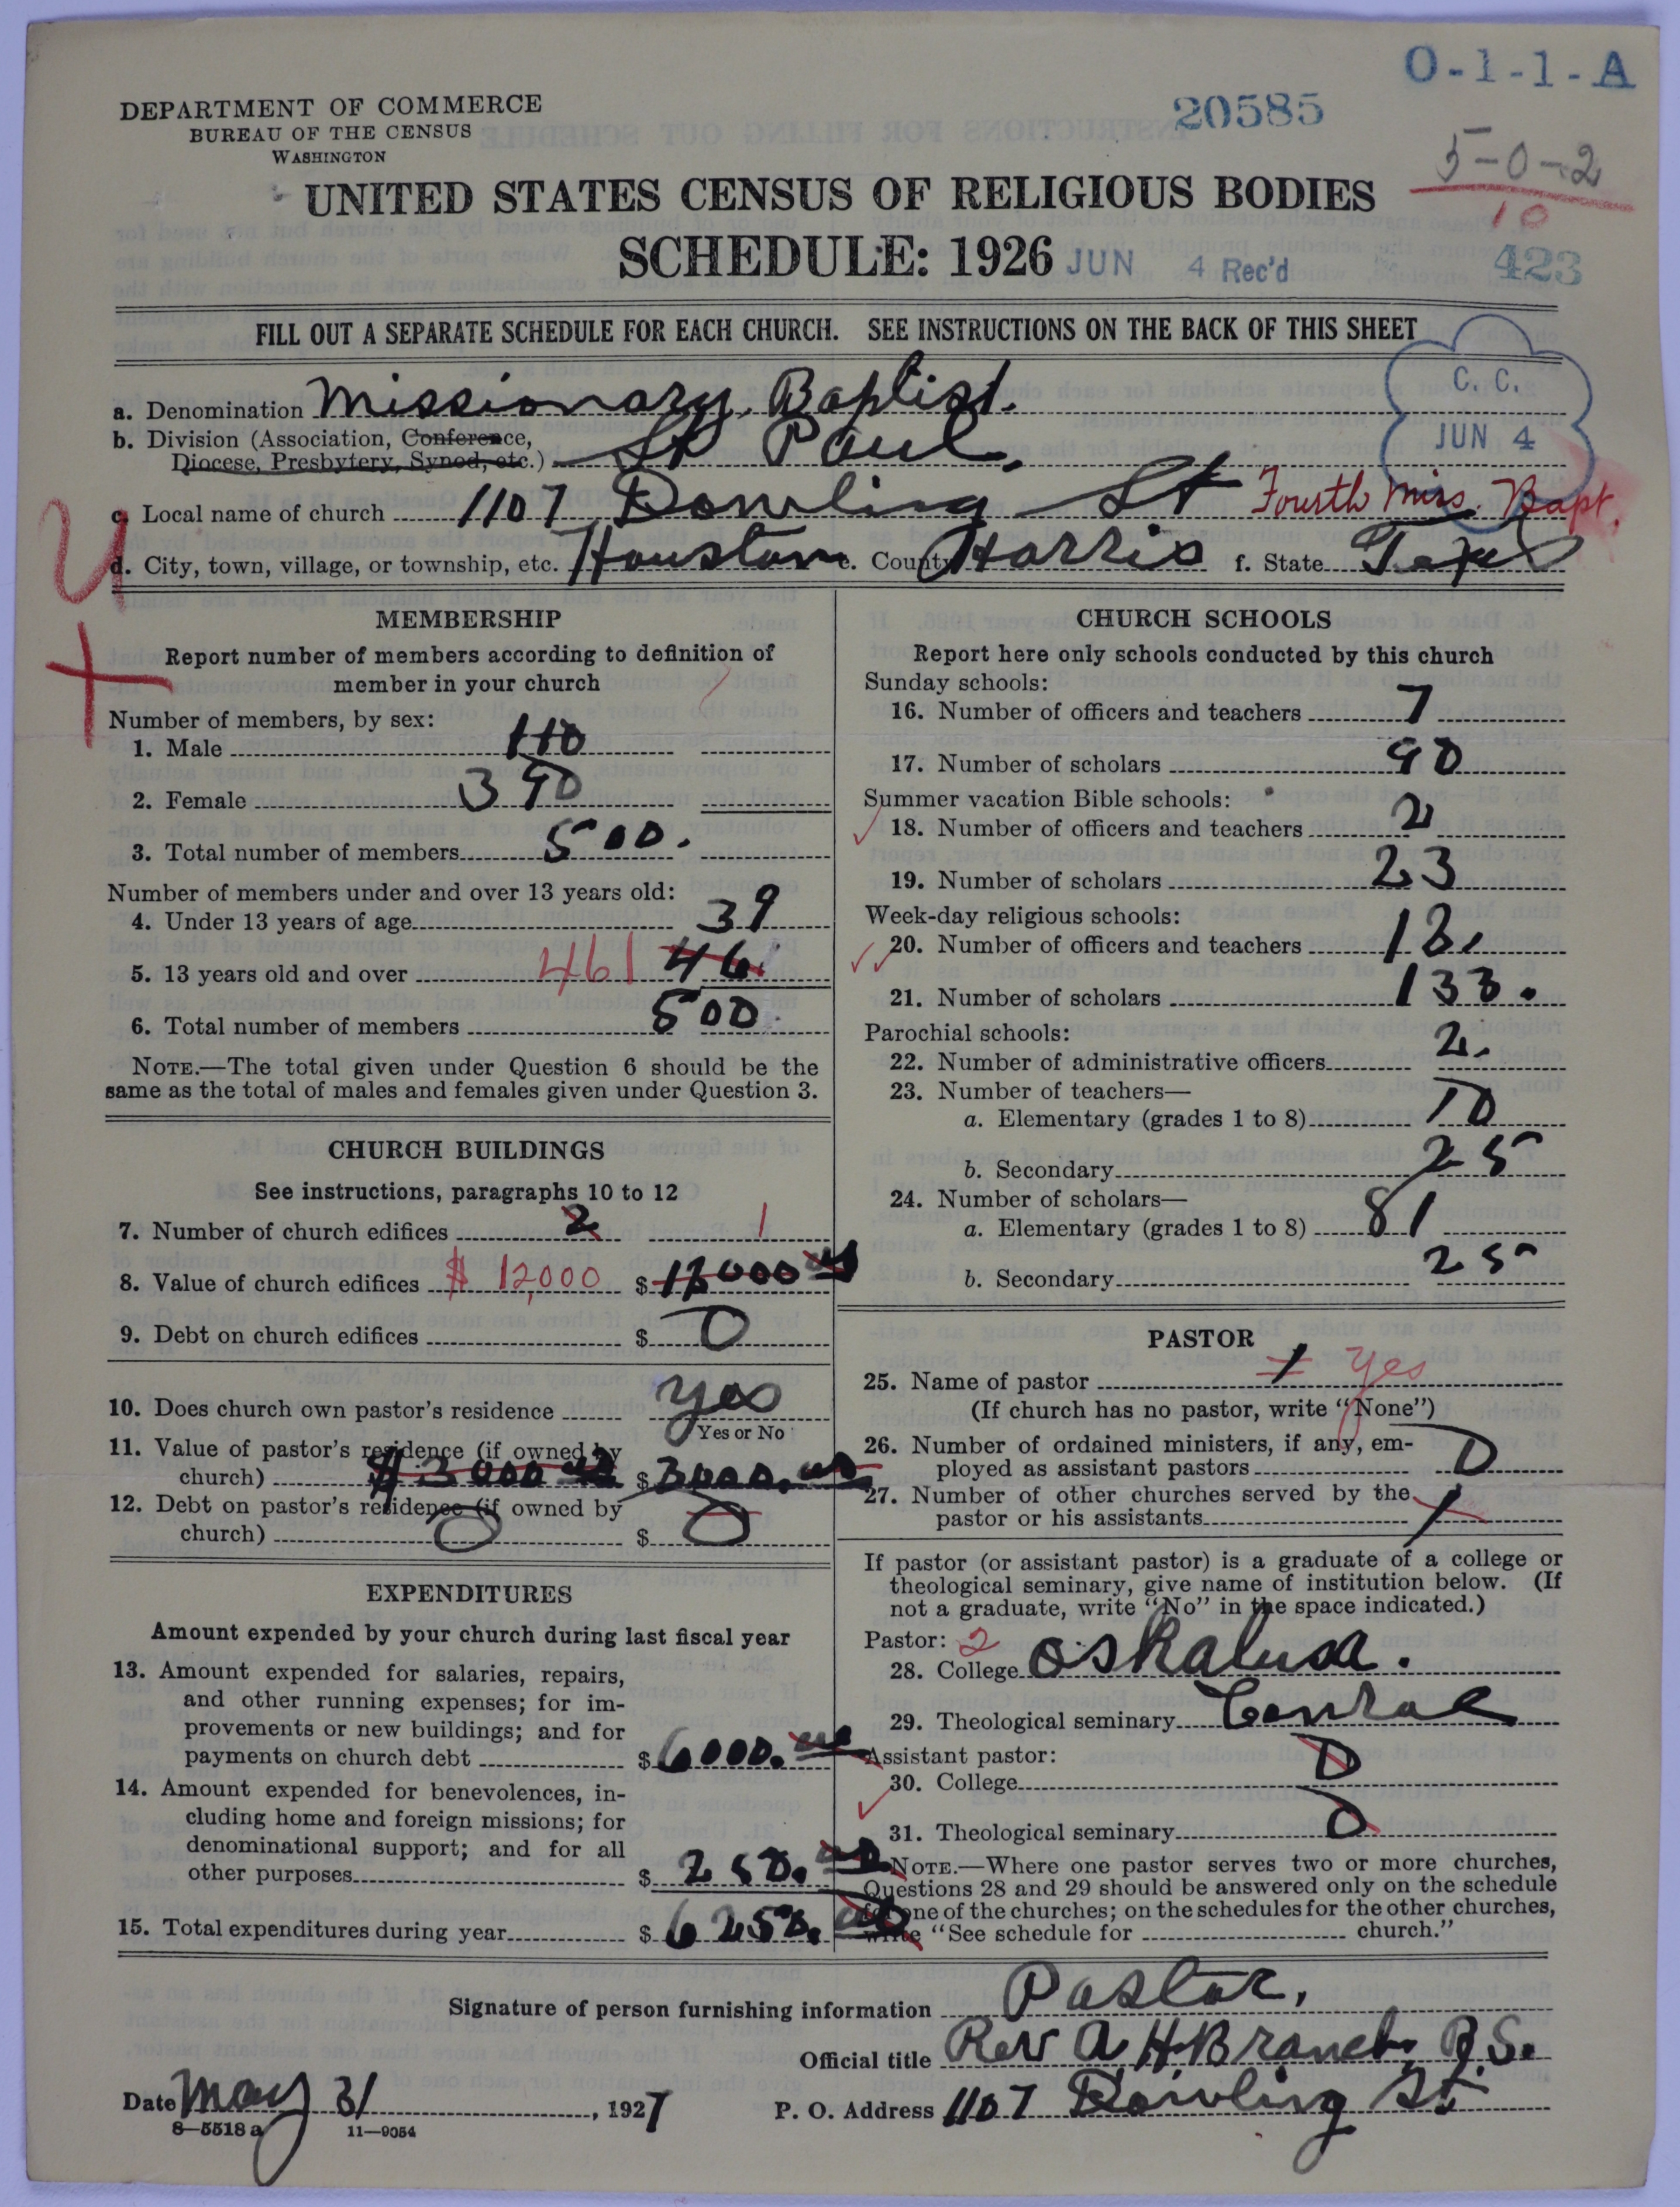 O-1-1-A
DEPARTMENT OF COMMERCE
BUREAU OF THE CENSUS
WASHINGTON
20585
5-0-2
10
UNITED STATES CENSUS OF RELIGIOUS BODIES
SCHEDULE: 1926
JUN 4 Rec'd
423
FILL OUT A SEPARATE SCHEDULE FOR EACH CHURCH. SEE INSTRUCTIONS ON THE BACK OF THIS SHEET
C. C.
JUN 4
a. Denomination Missionary Baptist.
b. Division (Association, Conference,
Diocese, Presbytery, Synod, etc.) St Paul.
c. Local name of church 1107 Dowling St Fourth Miss. Bapt.
d. City, town, village, or township, etc. Houston e. County Harris f. State Texas
MEMBERSHIP
Report number of members according to definition of
member in your church
Number of members, by sex:
1. Male 110
2. Female 390
3. Total number of members 500.
Number of members under and over 13 years old:
4. Under 13 years of age 39
5. 13 years old and over 461 461
6. Total number of members 500.
NOTE.—The total given under Question 6 should be the
same as the total of males and females given under Question 3.
CHURCH BUILDINGS
See instructions, paragraphs 10 to 12
7. Number of church edifices 2 1
8. Value of church edifices $ 12,000 $ 12000 00
9. Debt on church edifices $ 0
10. Does church own pastor's residence yes
Yes or No
11. Value of pastor's residence (if owned by
church) $3000 00 $ 3000.00
12. Debt on pastor's residence (if owned by
church) 0 $ 0
EXPENDITURES
Amount expended by your church during last fiscal year
13. Amount expended for salaries, repairs,
and other running expenses; for im-
provements or new buildings; and for
payments on church debt $ 6000.00
14. Amount expended for benevolences, in-
cluding home and foreign missions; for
denominational support; and for all
other purposes $ 250.00
15. Total expenditures during year $ 6250.00
CHURCH SCHOOLS
Report here only schools conducted by this church
Sunday schools:
16. Number of officers and teachers 7
17. Number of scholars 90
Summer vacation Bible schools:
18. Number of officers and teachers 2
19. Number of scholars 23
Week-day religious schools:
20. Number of officers and teachers 12.
21. Number of scholars 133.
Parochial schools:
22. Number of administrative officers 2.
23. Number of teachers—
a. Elementary (grades 1 to 8) 10
b. Secondary 25
24. Number of scholars—
a. Elementary (grades 1 to 8) 81
b. Secondary 25
PASTOR
25. Name of pastor 1 yes
(If church has no pastor, write "None")
26. Number of ordained ministers, if any, em-
ployed as assistant pastors 0
27. Number of other churches served by the
pastor or his assistants 1
If pastor (or assistant pastor) is a graduate of a college or
theological seminary, give name of institution below. (If
not a graduate, write "No" in the space indicated.)
Pastor: 2
28. College Oskalusa.
29. Theological seminary Conroe
Assistant pastor:
30. College 0
31. Theological seminary 0
NOTE.—Where one pastor serves two or more churches,
Questions 28 and 29 should be answered only on the schedule
for one of the churches; on the schedules for the other churches,
write "See schedule for church."
Signature of person furnishing information Pastor,
Official title Rev A H Branch, B.S.
Date May 31, 1927 P. O. Address 1107 Dowling St.
8—5518 a 11—9054